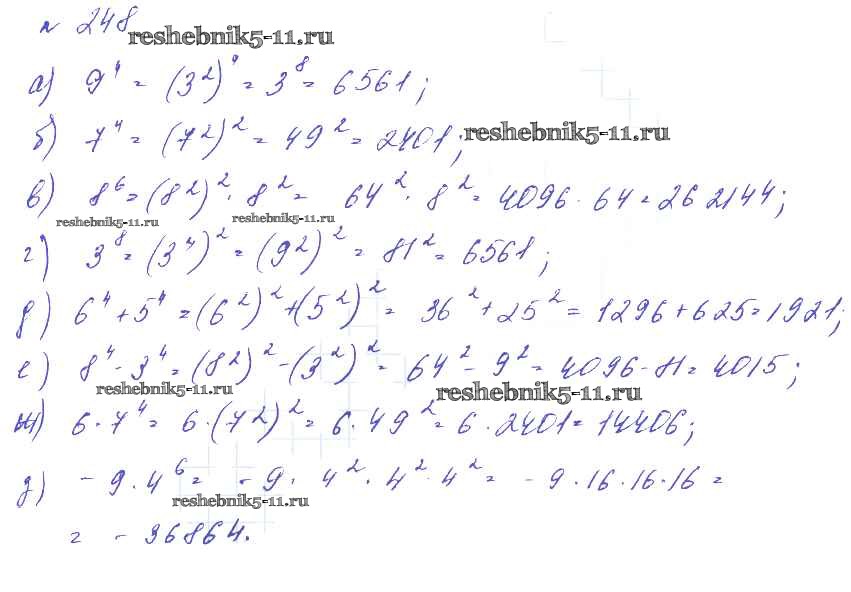 № 248
reshebnik5-11.ru
а) 9⁴ = (3²)⁴ = 3⁸ = 6561;
б) 7⁴ = (7²)² = 49² = 2401;
reshebnik5-11.ru
в) 8⁶ = (8²)² · 8² = 64² · 8² = 4096 · 64 = 262144;
reshebnik5-11.ru reshebnik5-11.ru
г) 3⁸ = (3⁴)² = (9²)² = 81² = 6561;
д) 6⁴ + 5⁴ = (6²)² + (5²)² = 36² + 25² = 1296 + 625 = 1921;
е) 8⁴ - 3⁴ = (8²)² - (3²)² = 64² - 9² = 4096 - 81 = 4015;
reshebnik5-11.ru reshebnik5-11.ru
ж) 6 · 7⁴ = 6 · (7²)² = 6 · 49² = 6 · 2401 = 14406;
з) - 9 · 4⁶ = - 9 · 4² · 4² · 4² = - 9 · 16 · 16 · 16 =
reshebnik5-11.ru
= - 36864.